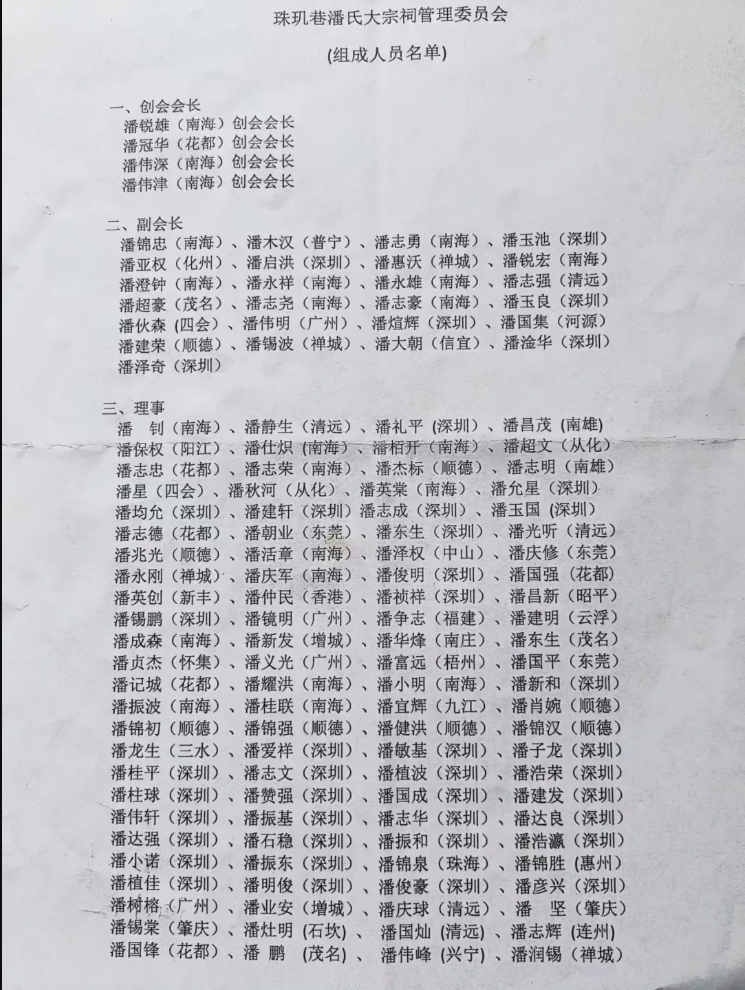 珠玑巷潘氏大宗祠管理委员会
(组成人员名单)
一、创会会长
潘锐雄（南海）创会会长
潘冠华（花都）创会会长
潘伟深（南海）创会会长
潘伟津（南海）创会会长
二、副会长
潘锦忠（南海）、潘木汉（普宁）、潘志勇（南海）、潘玉池（深圳）
潘亚权（化州）、潘启洪（深圳）、潘惠沃（禅城）、潘锐宏（南海）
潘澄钟（南海）、潘永祥（南海）、潘永雄（南海）、潘志强（清远）
潘超豪（茂名）、潘志尧（南海）、潘志豪（南海）、潘玉良（深圳）
潘伙森（四会）、潘伟明（广州）、潘煊辉（深圳）、潘国集（河源）
潘建荣（顺德）、潘锡波（禅城）、潘大朝（信宜）、潘淦华（深圳）
潘泽奇（深圳）
三、理事
潘　钊（南海）、潘静生（清远）、潘礼平（深圳）、潘昌茂（南雄)
潘保权（阳江）、潘仕炽（南海）、潘栢开（南海）、潘超文（从化）
潘志忠（花都）、潘志荣（南海）、潘杰标（顺德）、潘志明（南雄）
潘星（四会）、潘秋河（从化）、潘英棠（南海）、潘允星（深圳）
潘均允（深圳）、潘建轩（深圳）潘志成（深圳）、潘玉国（深圳）
潘志德（花都）、潘朝业（东莞）、潘东生（深圳）、潘光听（清远）
潘兆光（顺德）、潘活章（南海）、潘泽权（中山）、潘庆修（东莞）
潘永刚（禅城）、潘庆军（南海）、潘俊明（深圳）、潘国强（花都）
潘英创（新丰）、潘仲民（香港）、潘祯祥（深圳）、潘昌新（昭平）
潘锡鹏（深圳）、潘镜明（广州）、潘争志（福建）、潘建明（云浮）
潘成森（南海）、潘新发（增城）、潘华烽（南庄）、潘东生（茂名）
潘贞杰（怀集）、潘义光（广州）、潘富远（梧州）、潘国平（东莞）
潘记城（花都）、潘耀洪（南海）、潘小明（南海）、潘新和（深圳）
潘振波（南海）、潘桂联（南海）、潘宜辉（九江）、潘肖婉（顺德）
潘锦初（顺德）、潘锦强（顺德）、潘健洪（顺德）、潘锦汉（顺德）
潘龙生（三水）、潘爱祥（深圳）、潘敏基（深圳）、潘子龙（深圳）
潘桂平（深圳）、潘志文（深圳）、潘植波（深圳）、潘浩荣（深圳）
潘柱球（深圳）、潘赞强（深圳）、潘国成（深圳）、潘建发（深圳）
潘伟轩（深圳）、潘振基（深圳）、潘志华（深圳）、潘达良（深圳）
潘达强（深圳）、潘石稳（深圳）、潘振和（深圳）、潘浩瀛（深圳）
潘小诺（深圳）、潘振东（深圳）、潘锦泉（珠海）、潘锦胜（惠州）
潘植佳（深圳）、潘明俊（深圳）、潘俊豪（深圳）、潘彦兴（深圳）
潘树榕（广州）、潘业安（增城）、潘庆球（清远）、潘　坚（肇庆）
潘锡棠（肇庆）、潘灶明（石坎）、潘国灿（清远）、潘志辉（连州）
潘国锋（花都）、潘 鹏 （茂名）、潘伟峰（兴宁）、潘润锡（禅城）